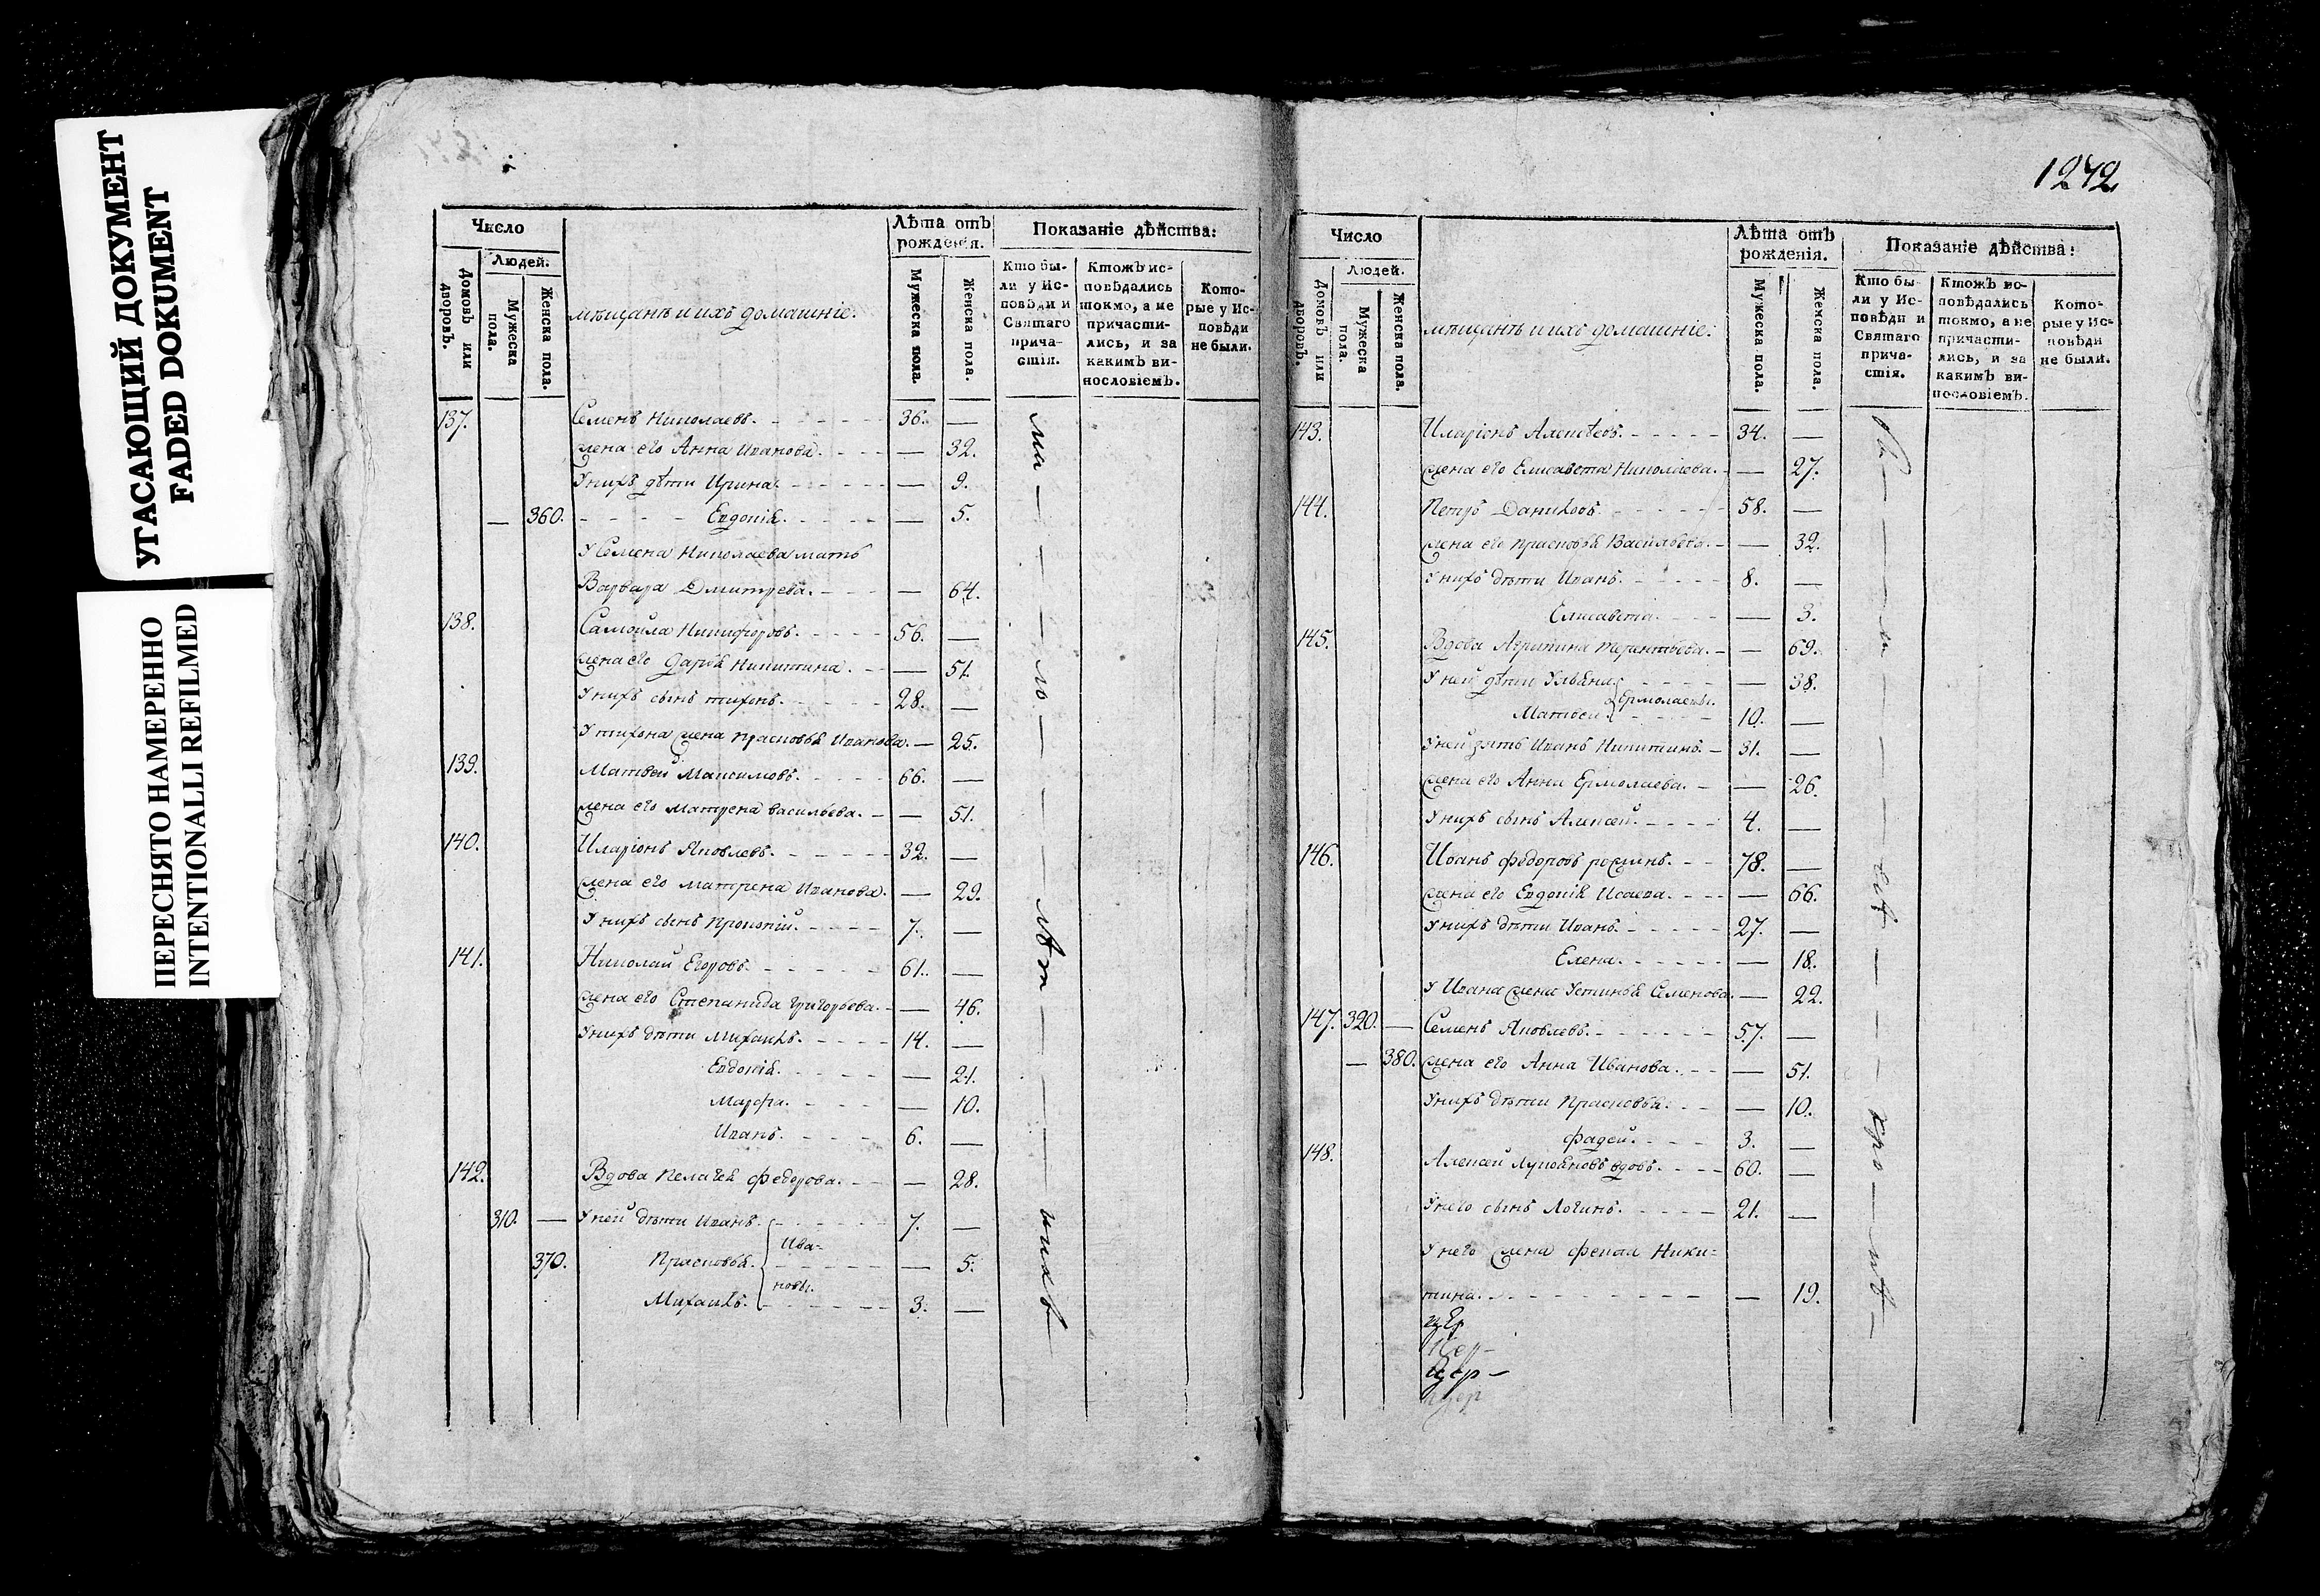 УГАСАЮЩИЙ ДОКУМЕНТ
FADED DOKUMENT
ПЕРЕСНЯТО НАМЕРЕННО
INTENTIONALLI REFILMED
Число
Людей.
Домовъ или дворовъ.
Мужеска пола.
Женска пола.
мѣщанъ и ихъ домашніе:
Лѣта отъ рожденія.
Мужеска пола.
Женска пола.
Показаніе дѣйства:
Кто бы-
ли у Ис-
повѣди и
Святаго
прича-
стія.
Ктожъ ис-
повѣдались
токмо, а не
причасти-
лись, и за
какимъ ви-
нословіемъ.
Кото-
рые у Ис-
повѣди
не были.
137. Семенъ Николаевъ. 36. —
жена его Анна Иванова. — 32.
У нихъ дѣти Ирина. — 9.
— 360. Евдокія. — 5.
У Семена Николаева мать
Варвара Дмитрева. — 64.
138. Самойла Никифоровъ. 56. —
жена его Дарья Никитина. — 51.
У нихъ сынъ Тихонъ. 28. —
У Тихона жена Прасковья Иванова. — 25.
139. Матвей Максимовъ. 66. —
жена его Матрена Васильева. — 51.
140. Иларіонъ Яковлевъ. 32. —
жена его Матрена Иванова. — 29.
У нихъ сынъ Прокопій. 7. —
141. Николай Егоровъ. 61. —
жена его Степанида Григорьева. — 46.
У нихъ дѣти Михаилъ. 14. —
Евдокія. — 21.
Марфа. — 10.
Иванъ. 6. —
142. Вдова Пелагея Федорова. — 28.
310. — У ней дѣти Иванъ. 7. —
Ива=
370. Прасковья. — 5.
новы.
Михаилъ. 3. —
1242
Число
Людей.
Домовъ или дворовъ.
Мужеска пола.
Женска пола.
мѣщанъ и ихъ домашніе:
Лѣта отъ рожденія.
Мужеска пола.
Женска пола.
Показаніе дѣйства:
Кто бы-
ли у Ис-
повѣди и
Святаго
прича-
стія.
Ктожъ ис-
повѣдались
токмо, а не
причасти-
лись, и за
какимъ ви-
нословіемъ.
Кото-
рые у Ис-
повѣди
не были.
143. Иларіонъ Алексѣевъ. 34. —
жена его Елисавета Николаева. — 27.
144. Петръ Даниловъ. 58. —
жена его Прасковья Васильева. — 32.
У нихъ дѣти Иванъ. 8. —
Елисавета. — 3.
145. Вдова Агрипина Терентьева. — 69.
У ней дѣти Ульяна. — 38.
Ермолаевы.
Матвей. 10. —
У ней зять Иванъ Никитинъ. 31. —
жена его Анна Ермолаева. — 26.
У нихъ сынъ Алексей. 4. —
146. Иванъ Федоровъ 78. —
жена его Евдокія Исаева. — 66.
У нихъ дѣти Иванъ. 27. —
Елена. — 18.
У Ивана жена Устинья Семенова. — 22.
147. 320. — Семенъ Яковлевъ. 57. —
— 380. жена его Анна Иванова. — 51.
У нихъ дѣти Прасковья. — 10.
Фадей. 3. —
148. Алексей Лукояновъ вдовъ. 60. —
У него сынъ Логинъ. 21. —
У него жена Фекла Ники=
тина. — 19.
цЕр
Цер-
Цер-